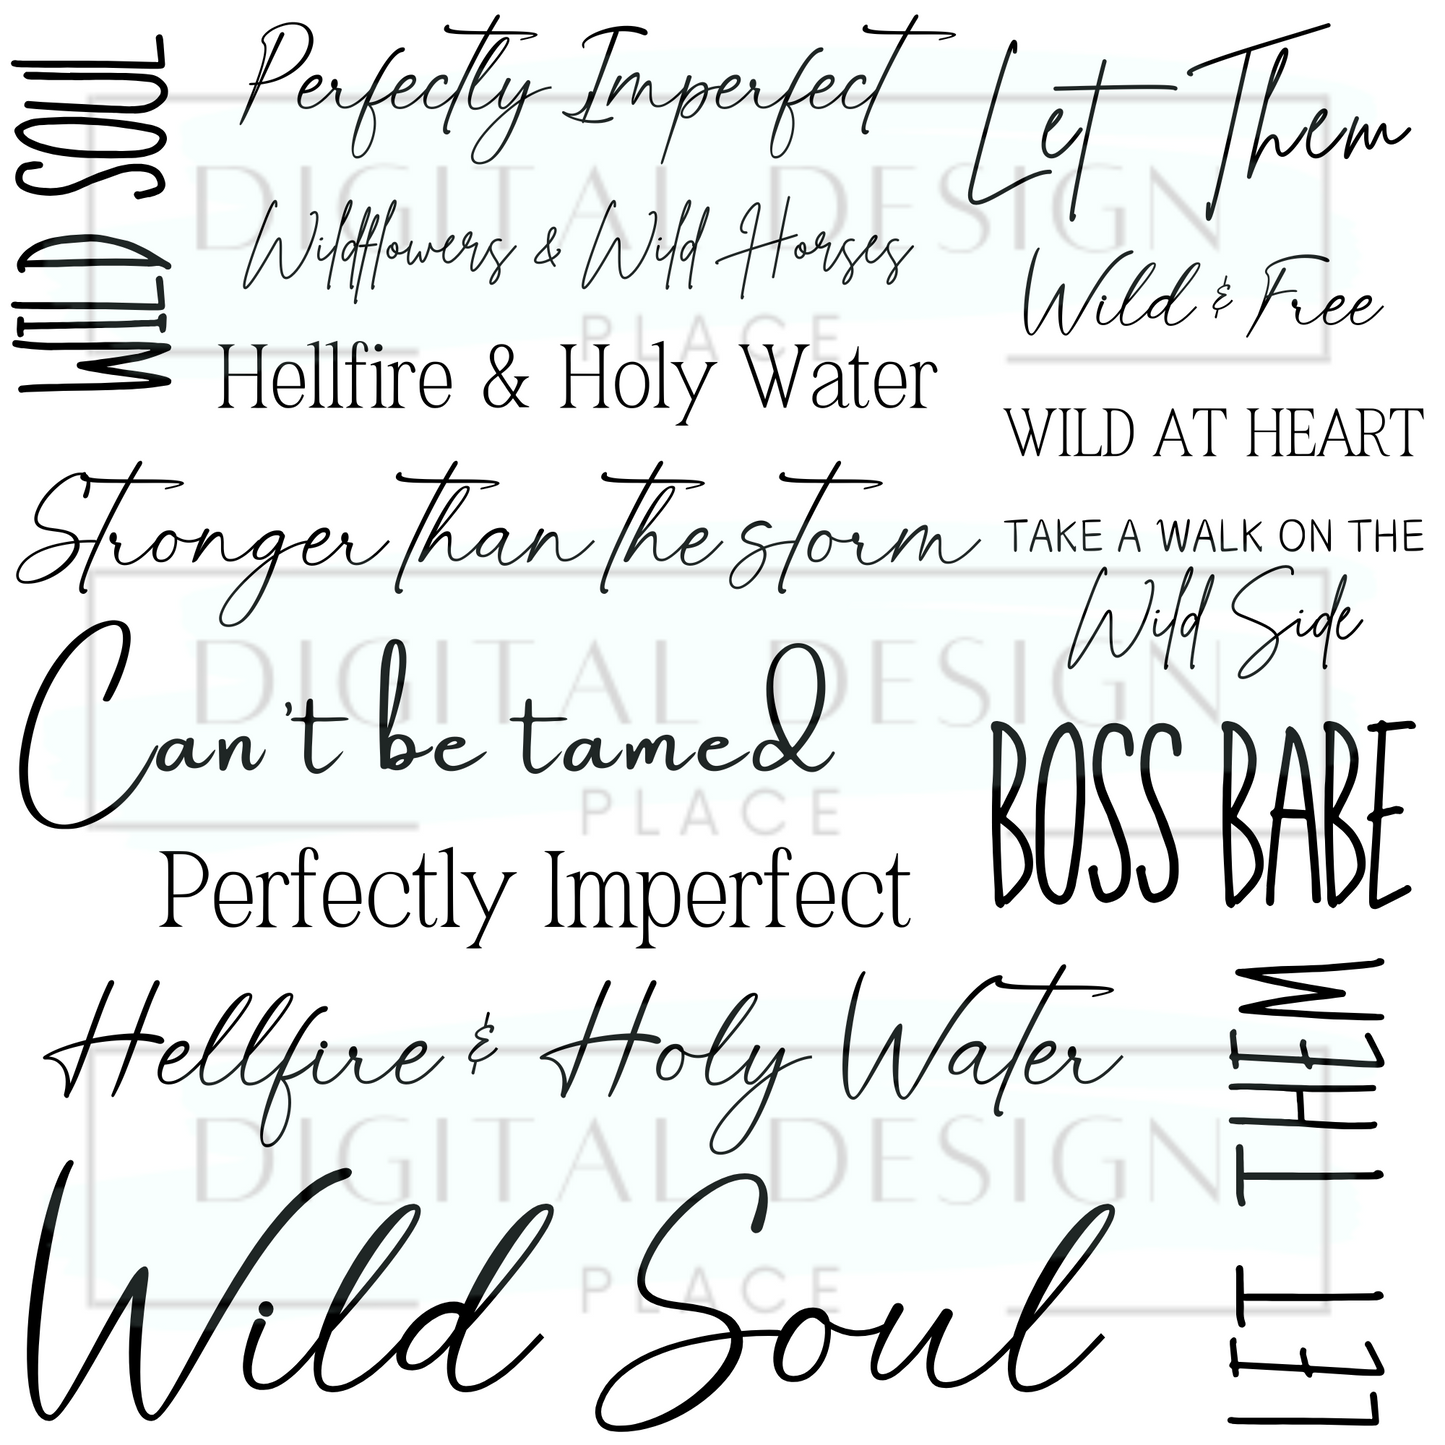 WILD SOUL
Perfectly Imperfect
Let Them
Wildflowers & Wild Horses
Wild & Free
Hellfire & Holy Water
WILD AT HEART
Stronger than the storm
TAKE A WALK ON THE
Wild Side
Can't be tamed
BOSS BABE
Perfectly Imperfect
Hellfire & Holy Water
LET THEM
Wild Soul
DIGITAL DESIGN
PLACE
DIGITAL DESIGN
PLACE
DIGITAL DESIGN
PLACE